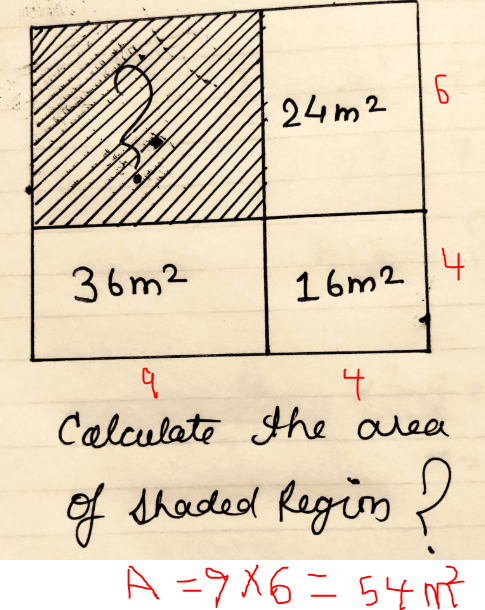 ?
24m² 6
36m² 16m² 4
9 4
Calculate the area
of shaded Region ?
A = 9 X 6 = 54 m²